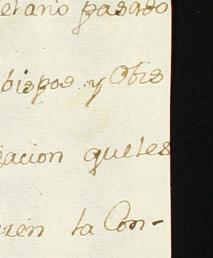 el ano pasado
bispos y Obis
acion que les
ren la Con-